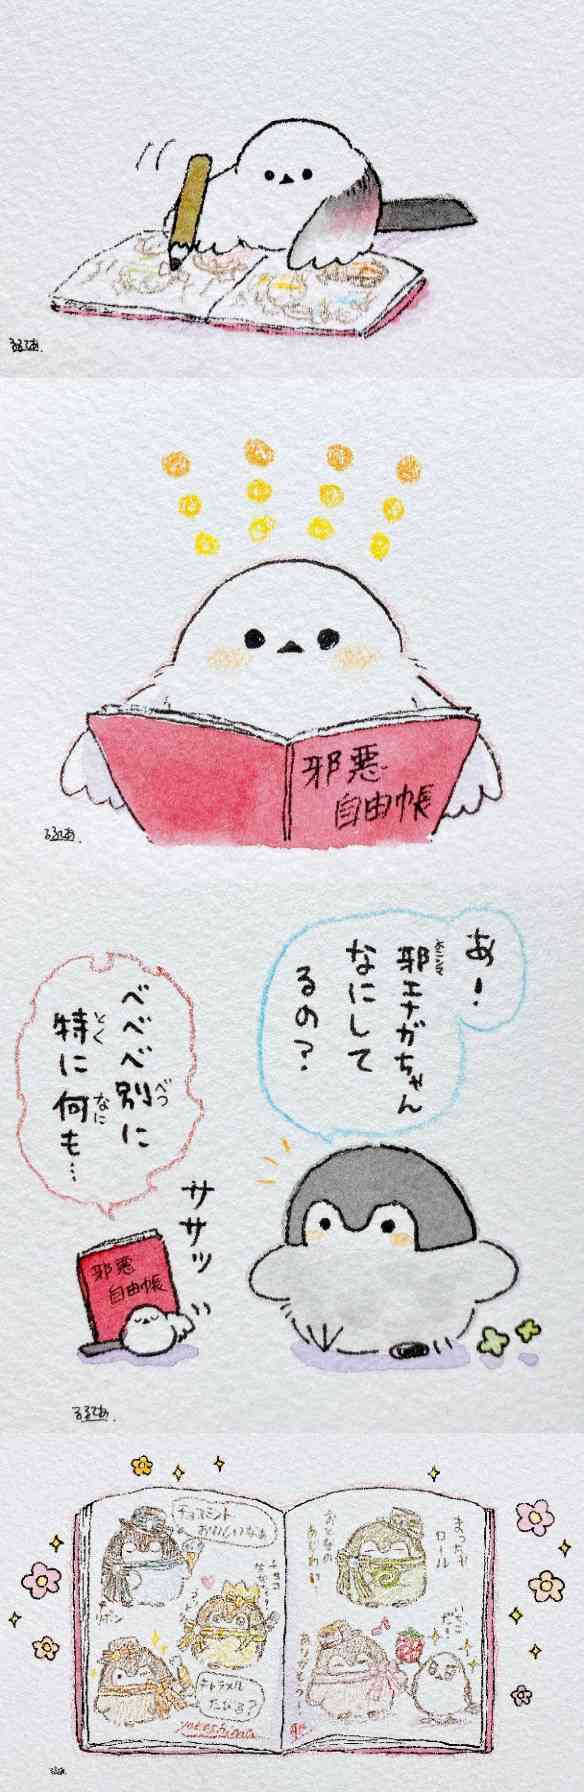 るるてあ.
邪悪
自由帳
るるてあ.
あ!
邪エナガちゃん
よこしま
なにして
るの?
べべべ別に
べつ
特に何も…
とく
なに
ササッ
邪悪
自由帳
るるてあ.
チョコミント
おいしいなぁ
リボン
キャラメル
たべる?
まっちゃ
ロール
おとなの
あじわい
いちご
だ!
ありがとう!